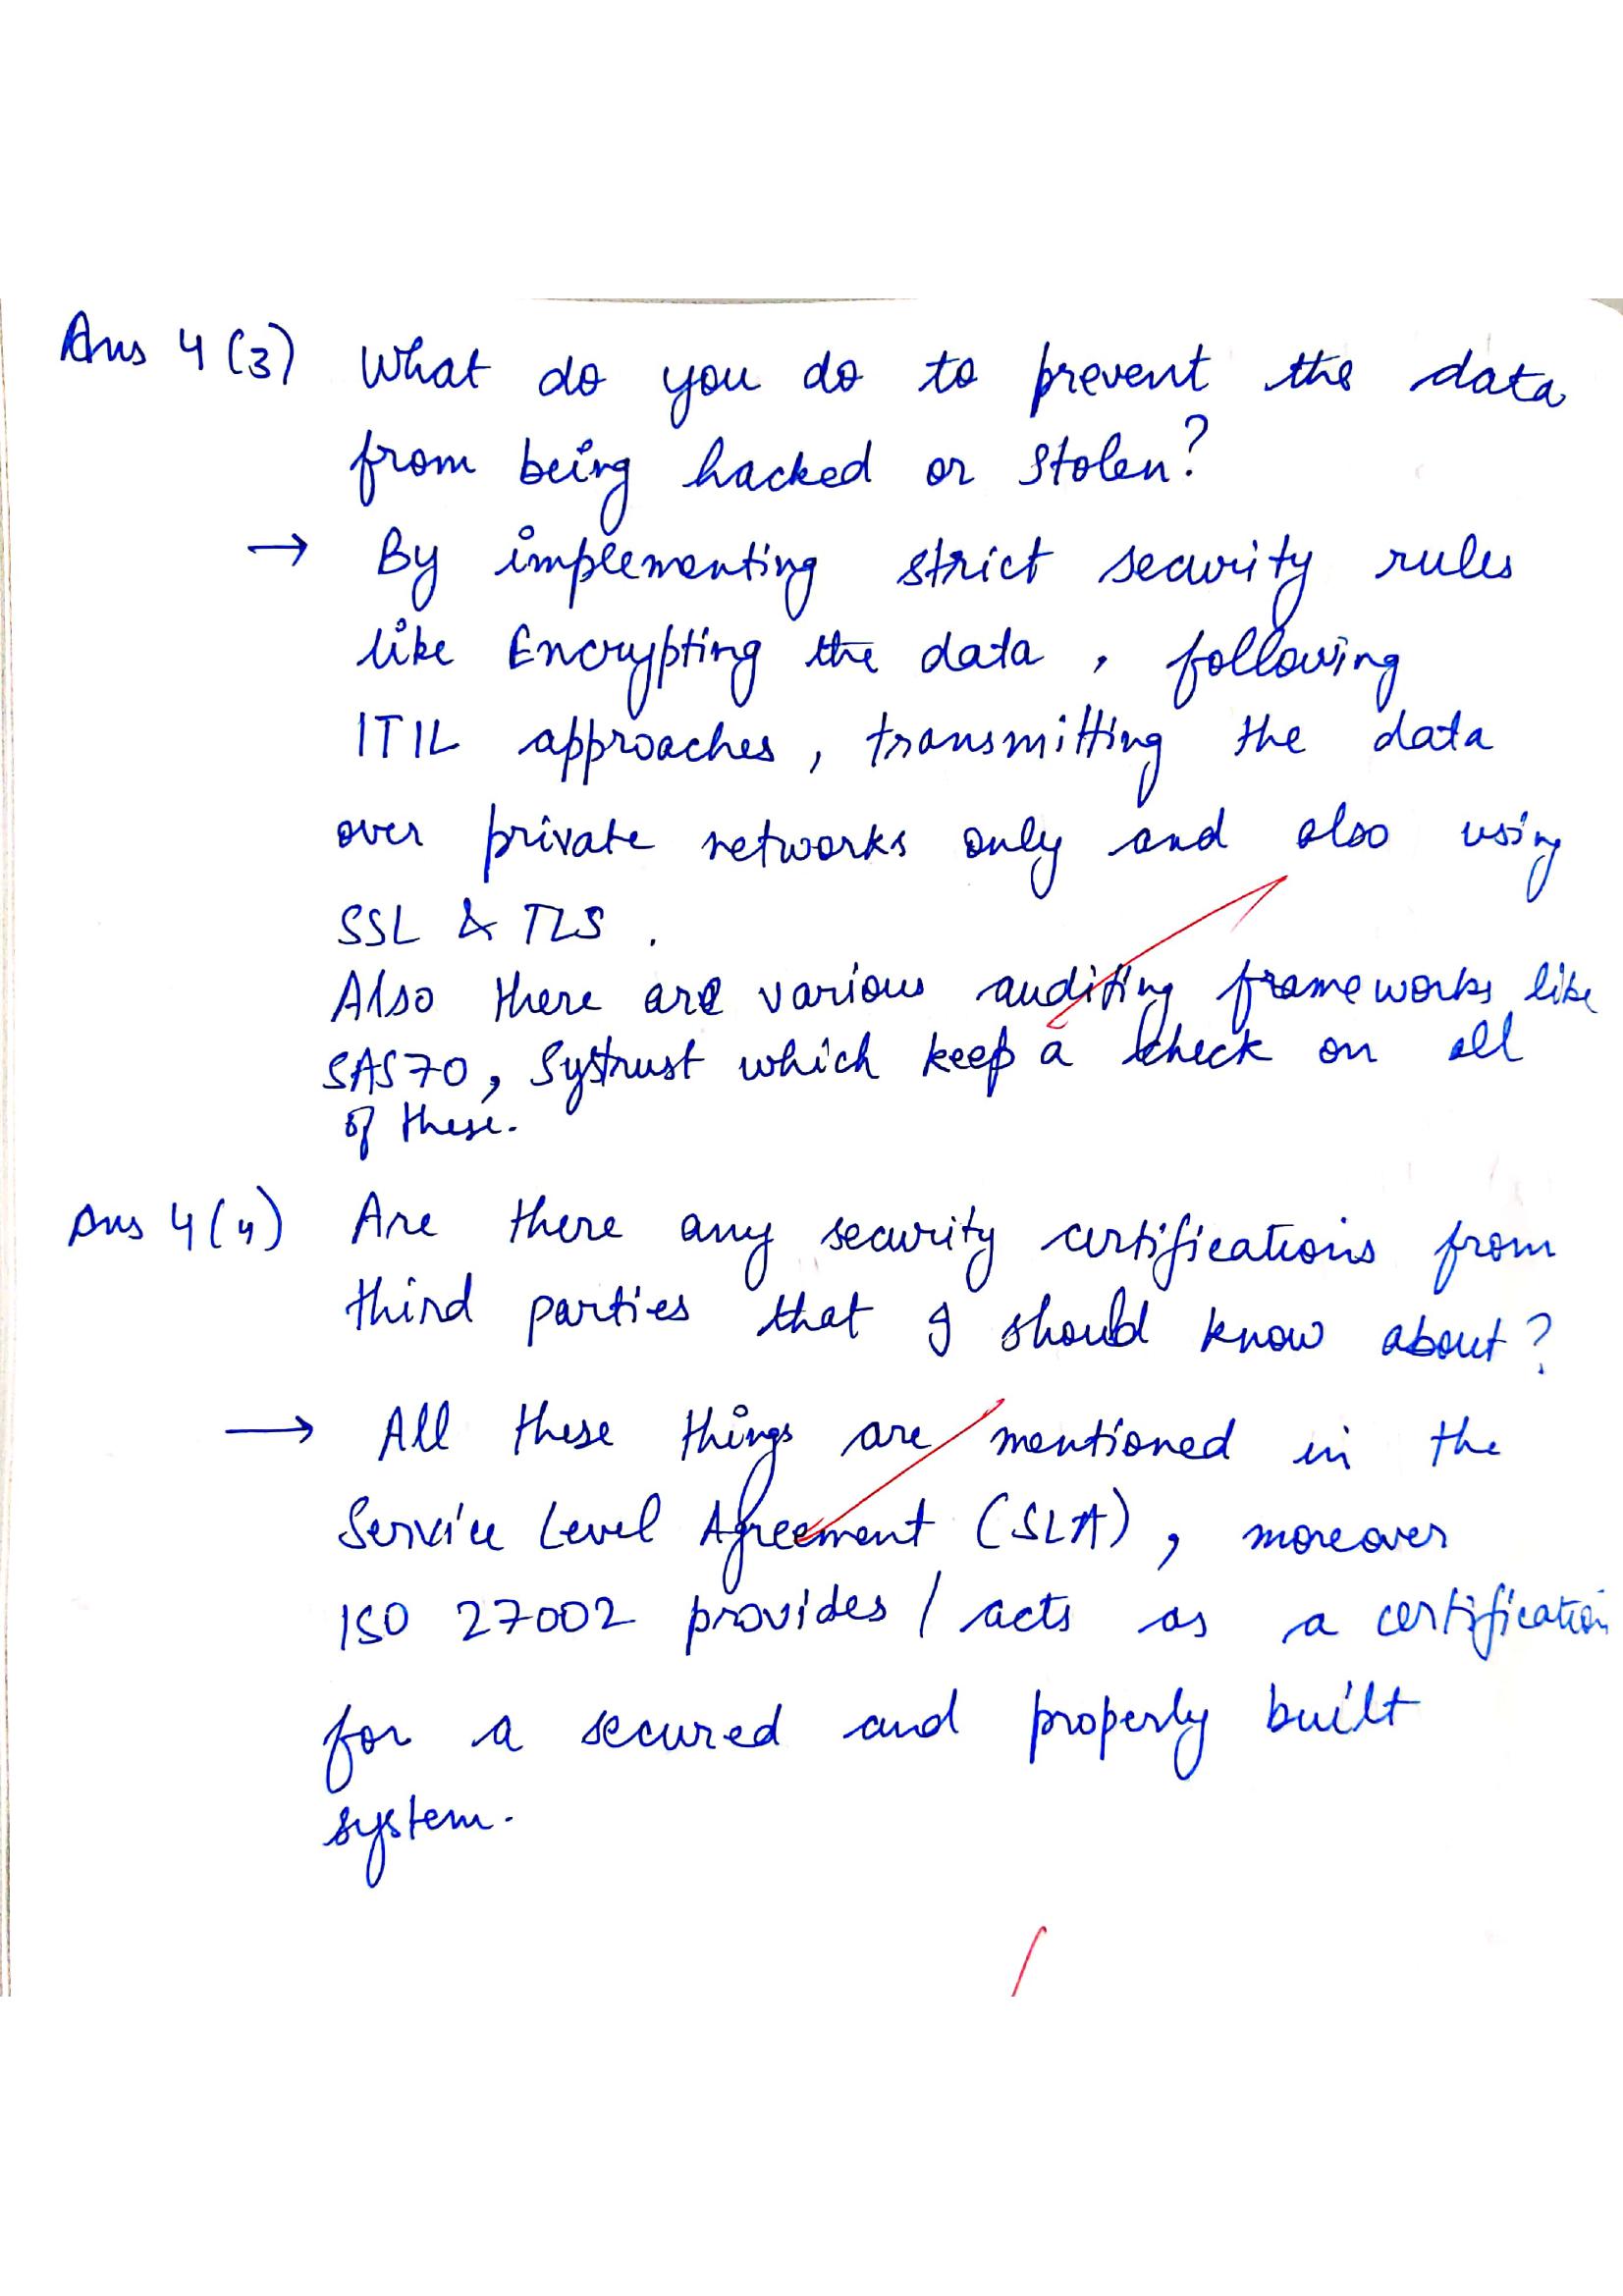 Ans 4 (3) What do you do to prevent the data
from being hacked or stolen?
→ By implementing strict security rules
like Encrypting the data, following
ITIL approaches, transmitting the data
over private networks only and also using
SSL & TLS.
Also there are various auditing frameworks like
SAS70, Systrust which keep a check on all
of these.
Ans 4 (4) Are there any security certifications from
third parties that I should know about?
→ All these things are mentioned in the
Service Level Agreement (SLA), moreover
ISO 27002 provides / acts as a certification
for a secured and properly built
system.